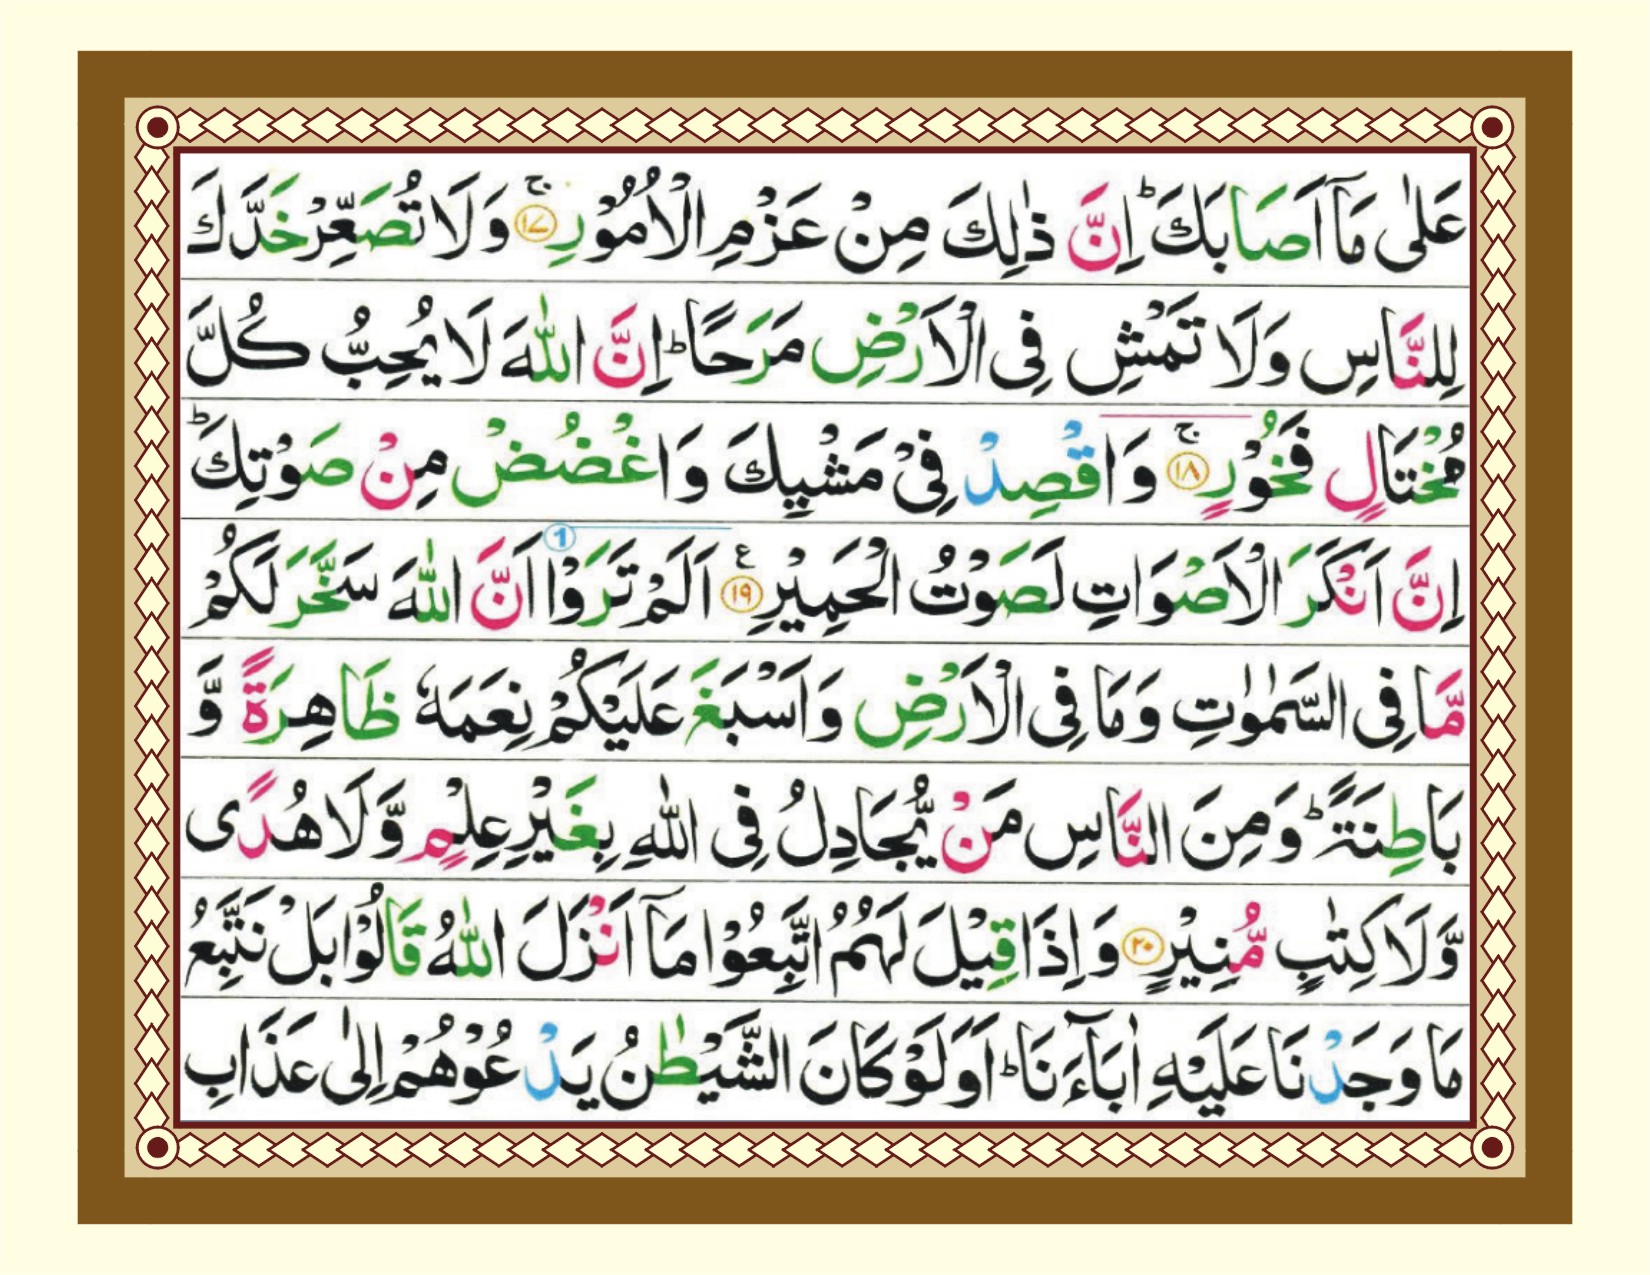 عَلٰى مَاۤ اَصَابَكَ ؕ اِنَّ ذٰلِكَ مِنْ عَزْمِ الْاُمُوْرِ ۚ ﴿۱۷﴾ وَلَا تُصَعِّرْ خَدَّكَ
لِلنَّاسِ وَلَا تَمْشِ فِى الْاَرْضِ مَرَحًا ؕ اِنَّ اللّٰهَ لَا يُحِبُّ كُلَّ
مُخْتَالٍ فَخُوْرٍ ۚ ﴿۱۸﴾ وَاقْصِدْ فِىْ مَشْيِكَ وَاغْضُضْ مِنْ صَوْتِكَ ؕ
اِنَّ اَنْكَرَ الْاَصْوَاتِ لَصَوْتُ الْحَمِيْرِ ﴿۱۹﴾ ع اَلَمْ تَرَوْا 1 اَنَّ اللّٰهَ سَخَّرَ لَكُمْ
مَّا فِى السَّمٰوٰتِ وَمَا فِى الْاَرْضِ وَاَسْبَغَ عَلَيْكُمْ نِعَمَهٗ ظَاهِرَةً وَّ
بَاطِنَةً ؕ وَمِنَ النَّاسِ مَنْ يُّجَادِلُ فِى اللّٰهِ بِغَيْرِ عِلْمٍ وَّلَا هُدًى
وَّلَا كِتٰبٍ مُّنِيْرٍ ﴿۲۰﴾ وَاِذَا قِيْلَ لَهُمُ اتَّبِعُوْا مَاۤ اَنْزَلَ اللّٰهُ قَالُوْا بَلْ نَتَّبِعُ
مَا وَجَدْنَا عَلَيْهِ اٰبَآءَنَا ؕ اَوَلَوْ كَانَ الشَّيْطٰنُ يَدْعُوْهُمْ اِلٰى عَذَابِ